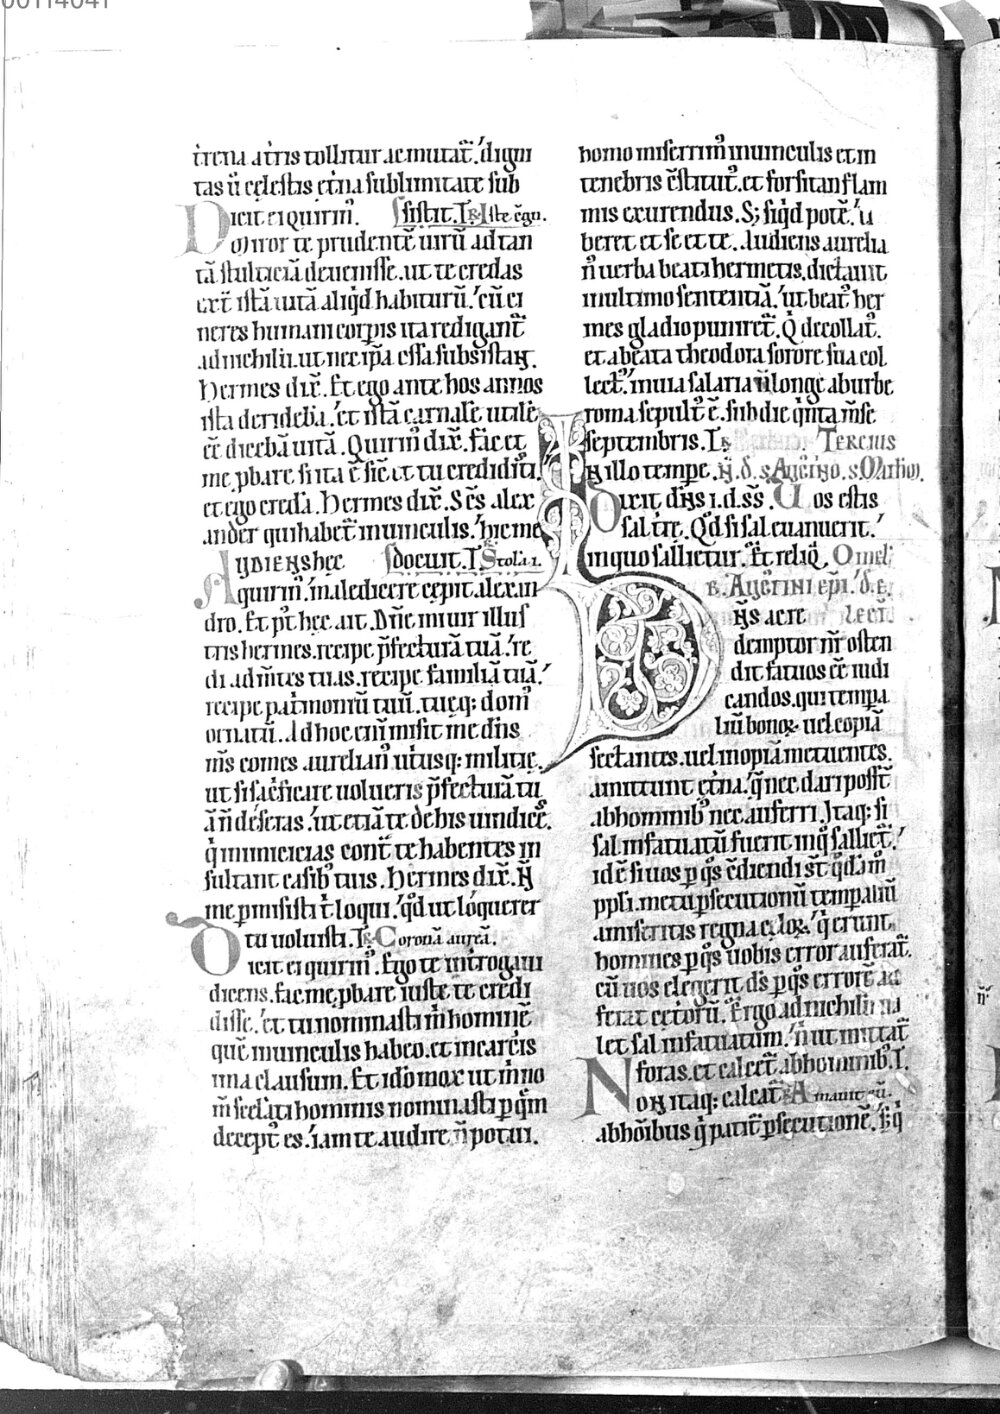 00114041
trena atris tollitur ac mutat᷑. digni
tas ū cęlestis et̄na sublimitate sub
Dicit ei quirinꝰ. sistit. R̃ Iste c̄gn.
Miror te prudentē uirū ad tan
tā stulticiā deuenisse. ut te credas
ext̄ istā uitā aliqd habiturū. cū ci
neres humani corp̄is ita redigant᷑
ad nichilū. ut nec ip̄a ossa subsistant.
Hermes dix̄. Et ego ante hos annos
ista deridebā. et istā carnalē utilē
eē dicebā uitā. Quirinꝰ dix̄. fac et
me ꝓbare si ita ē sic. et tu credidisti.
et ego credā. Hermes dix̄. Sc̄s alex
ander qui habet᷑ in uinculis. hic me
Audiens hec docuit. R̃ Stola. i.
quirinꝰ. maledicere cępit alexan
dro. Et pꝰ hec ait. Dn̄e mi uir illus
tris hermes. recipe p̄fecturā tuā. re
di ad m̄tes tuas. recipe familiā tuā.
recipe patⁱmoniū tuū. tueq; domꝰ
ornatū. Ad hoc enī misit me dn̄s
m̄s comes aurelianꝰ utiusq; militię.
ut si sac̄ficare uolueris p̄fecturā tu
ā n̄ deseras. ut etiā te debis uindicē.
q̄ inimicicias cont̄ te habentes in
sultant casibꝰ tuis. Hermes dix̄. N̄
me ꝑmisisti loqui. qd ut lóquerer
tu uoluisti. R̃ Coronā aureā.
Dicit ei quirinꝰ. Ego te int̄rogaui
dicens. fac me ꝓbare iuste te credi
disse. et tu nominasti m̄ hominē
quē in uinculis habeo. et in carc̄is
ima clausum. Et id̄o mox ut in̄no
m̄ scelati hominis nominasti ꝑ quē
decept᷑ es. iam te audire n̄ potui.
homo miserrimꝰ in uinculis et in
tenebris c̄stitutꝰ. et forsitan flam
mis exurendus. S; siqd potē. li
beret et se et te. Audiens aurelia
nꝰ uerba beati hermetis. dictauit
in ultimo sententiā. ut beatꝰ her
mes gladio puniret᷑. Qi decollatꝰ.
et a beata theodora sorore sua col
lectꝰ. in uia salaria n̄ longe ab urbe
roma sepultꝰ ē. sub die quinta m̄se
septembris. Tercius
In illo tempe. N̄. d. s. Augustino. s. Mathm.
Dixit dn̄s i. d. ss̄. Uos estis
sal tr̄e. Qd si sal euanuerit.
in quo sallietur. Et reliq̄. Omel.
B. Augustini ep̄i. d. e.
N̄s acre lect.
demptor nr̄ osten
dit fatuos eē iudi
candos. qui tempa
liū bonoꝝ uel copiā
sectantes. uel inopiā metuentes.
amittunt et̄na. q̄ nec dari poss̄t
ab hominibꝰ nec auferri. Itaq; si
sal infatuatū fuerit in q̄ salliet᷑.
id ē si uos ꝑ qs c̄diendi st̄ qdāmꝰ
ppl̄i. metu ꝑsecutionū tempaliū
amiseritis regna cęloꝝ. qi erunt
homines ꝑ qs uobis error auferat᷑.
cū uos elegerit ds̄ ꝑ qs errorē au
ferat cęt̄orū. Ergo ad nichilū ua
let sal infatuatum. n̄ ut mittat᷑
foras. et calcet᷑ ab hominibꝰ. I.
Non itaq; calcat᷑ R̃ Amauit eū.
ab hōibus qi patit᷑ ꝑsecutionē. s; qi